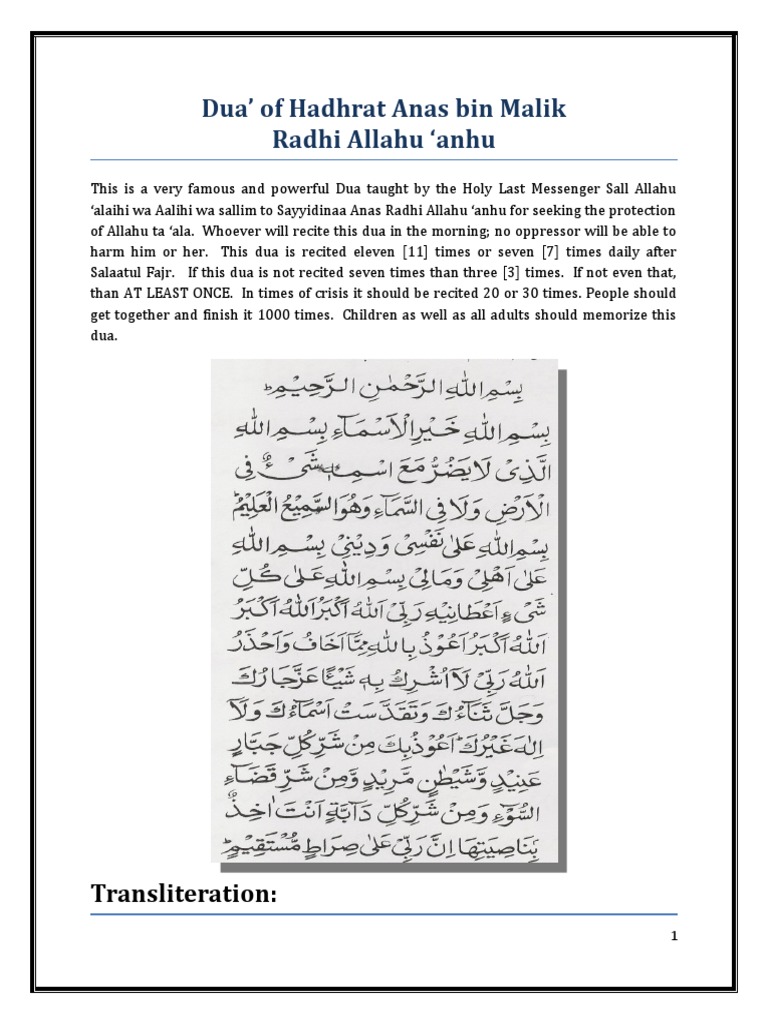 Dua’ of Hadhrat Anas bin Malik
Radhi Allahu ‘anhu
This is a very famous and powerful Dua taught by the Holy Last Messenger Sall Allahu
‘alaihi wa Aalihi wa sallim to Sayyidinaa Anas Radhi Allahu ‘anhu for seeking the protection
of Allahu ta ‘ala. Whoever will recite this dua in the morning; no oppressor will be able to
harm him or her. This dua is recited eleven [11] times or seven [7] times daily after
Salaatul Fajr. If this dua is not recited seven times than three [3] times. If not even that,
than AT LEAST ONCE. In times of crisis it should be recited 20 or 30 times. People should
get together and finish it 1000 times. Children as well as all adults should memorize this
dua.
بِسْمِ اللهِ الرَّحْمٰنِ الرَّحِيْمِ ؕ
بِسْمِ اللهِ خَيْرِ الْاَسْمَآءِ بِسْمِ اللهِ
الَّذِىْ لَا يَضُرُّ مَعَ اسْمِهٖ شَىْءٌ فِى
الْاَرْضِ وَلَا فِى السَّمَآءِ وَهُوَ السَّمِيْعُ الْعَلِيْمُ ؕ
بِسْمِ اللهِ عَلٰى نَفْسِىْ وَدِيْنِىْ بِسْمِ اللهِ
عَلٰى اَهْلِىْ وَمَالِىْ بِسْمِ اللهِ عَلٰى كُلِّ
شَىْءٍ اَعْطَانِيْهِ رَبِّىْ اَللهُ اَكْبَرُ اَللهُ اَكْبَرُ
اَللهُ اَكْبَرُ اَعُوْذُ بِاللهِ مِمَّا اَخَافُ وَاَحْذَرُ
اَللهُ رَبِّىْ لَآ اُشْرِكُ بِهٖ شَيْئًا عَزَّ جَارُكَ
وَجَلَّ ثَنَآءُكَ وَتَقَدَّسَتْ اَسْمَآءُكَ وَلَآ
اِلٰهَ غَيْرُكَ ؕ اَعُوْذُ بِكَ مِنْ شَرِّ كُلِّ جَبَّارٍ
عَنِيْدٍ وَّشَيْطٰنٍ مَّرِيْدٍ وَّمِنْ شَرِّ قَضَآءِ
السُّوْٓءِ وَمِنْ شَرِّ كُلِّ دَآبَّةٍ اَنْتَ اٰخِذٌۢ
بِنَاصِيَتِهَا اِنَّ رَبِّىْ عَلٰى صِرَاطٍ مُّسْتَقِيْمٍ ؕ
Transliteration:
1